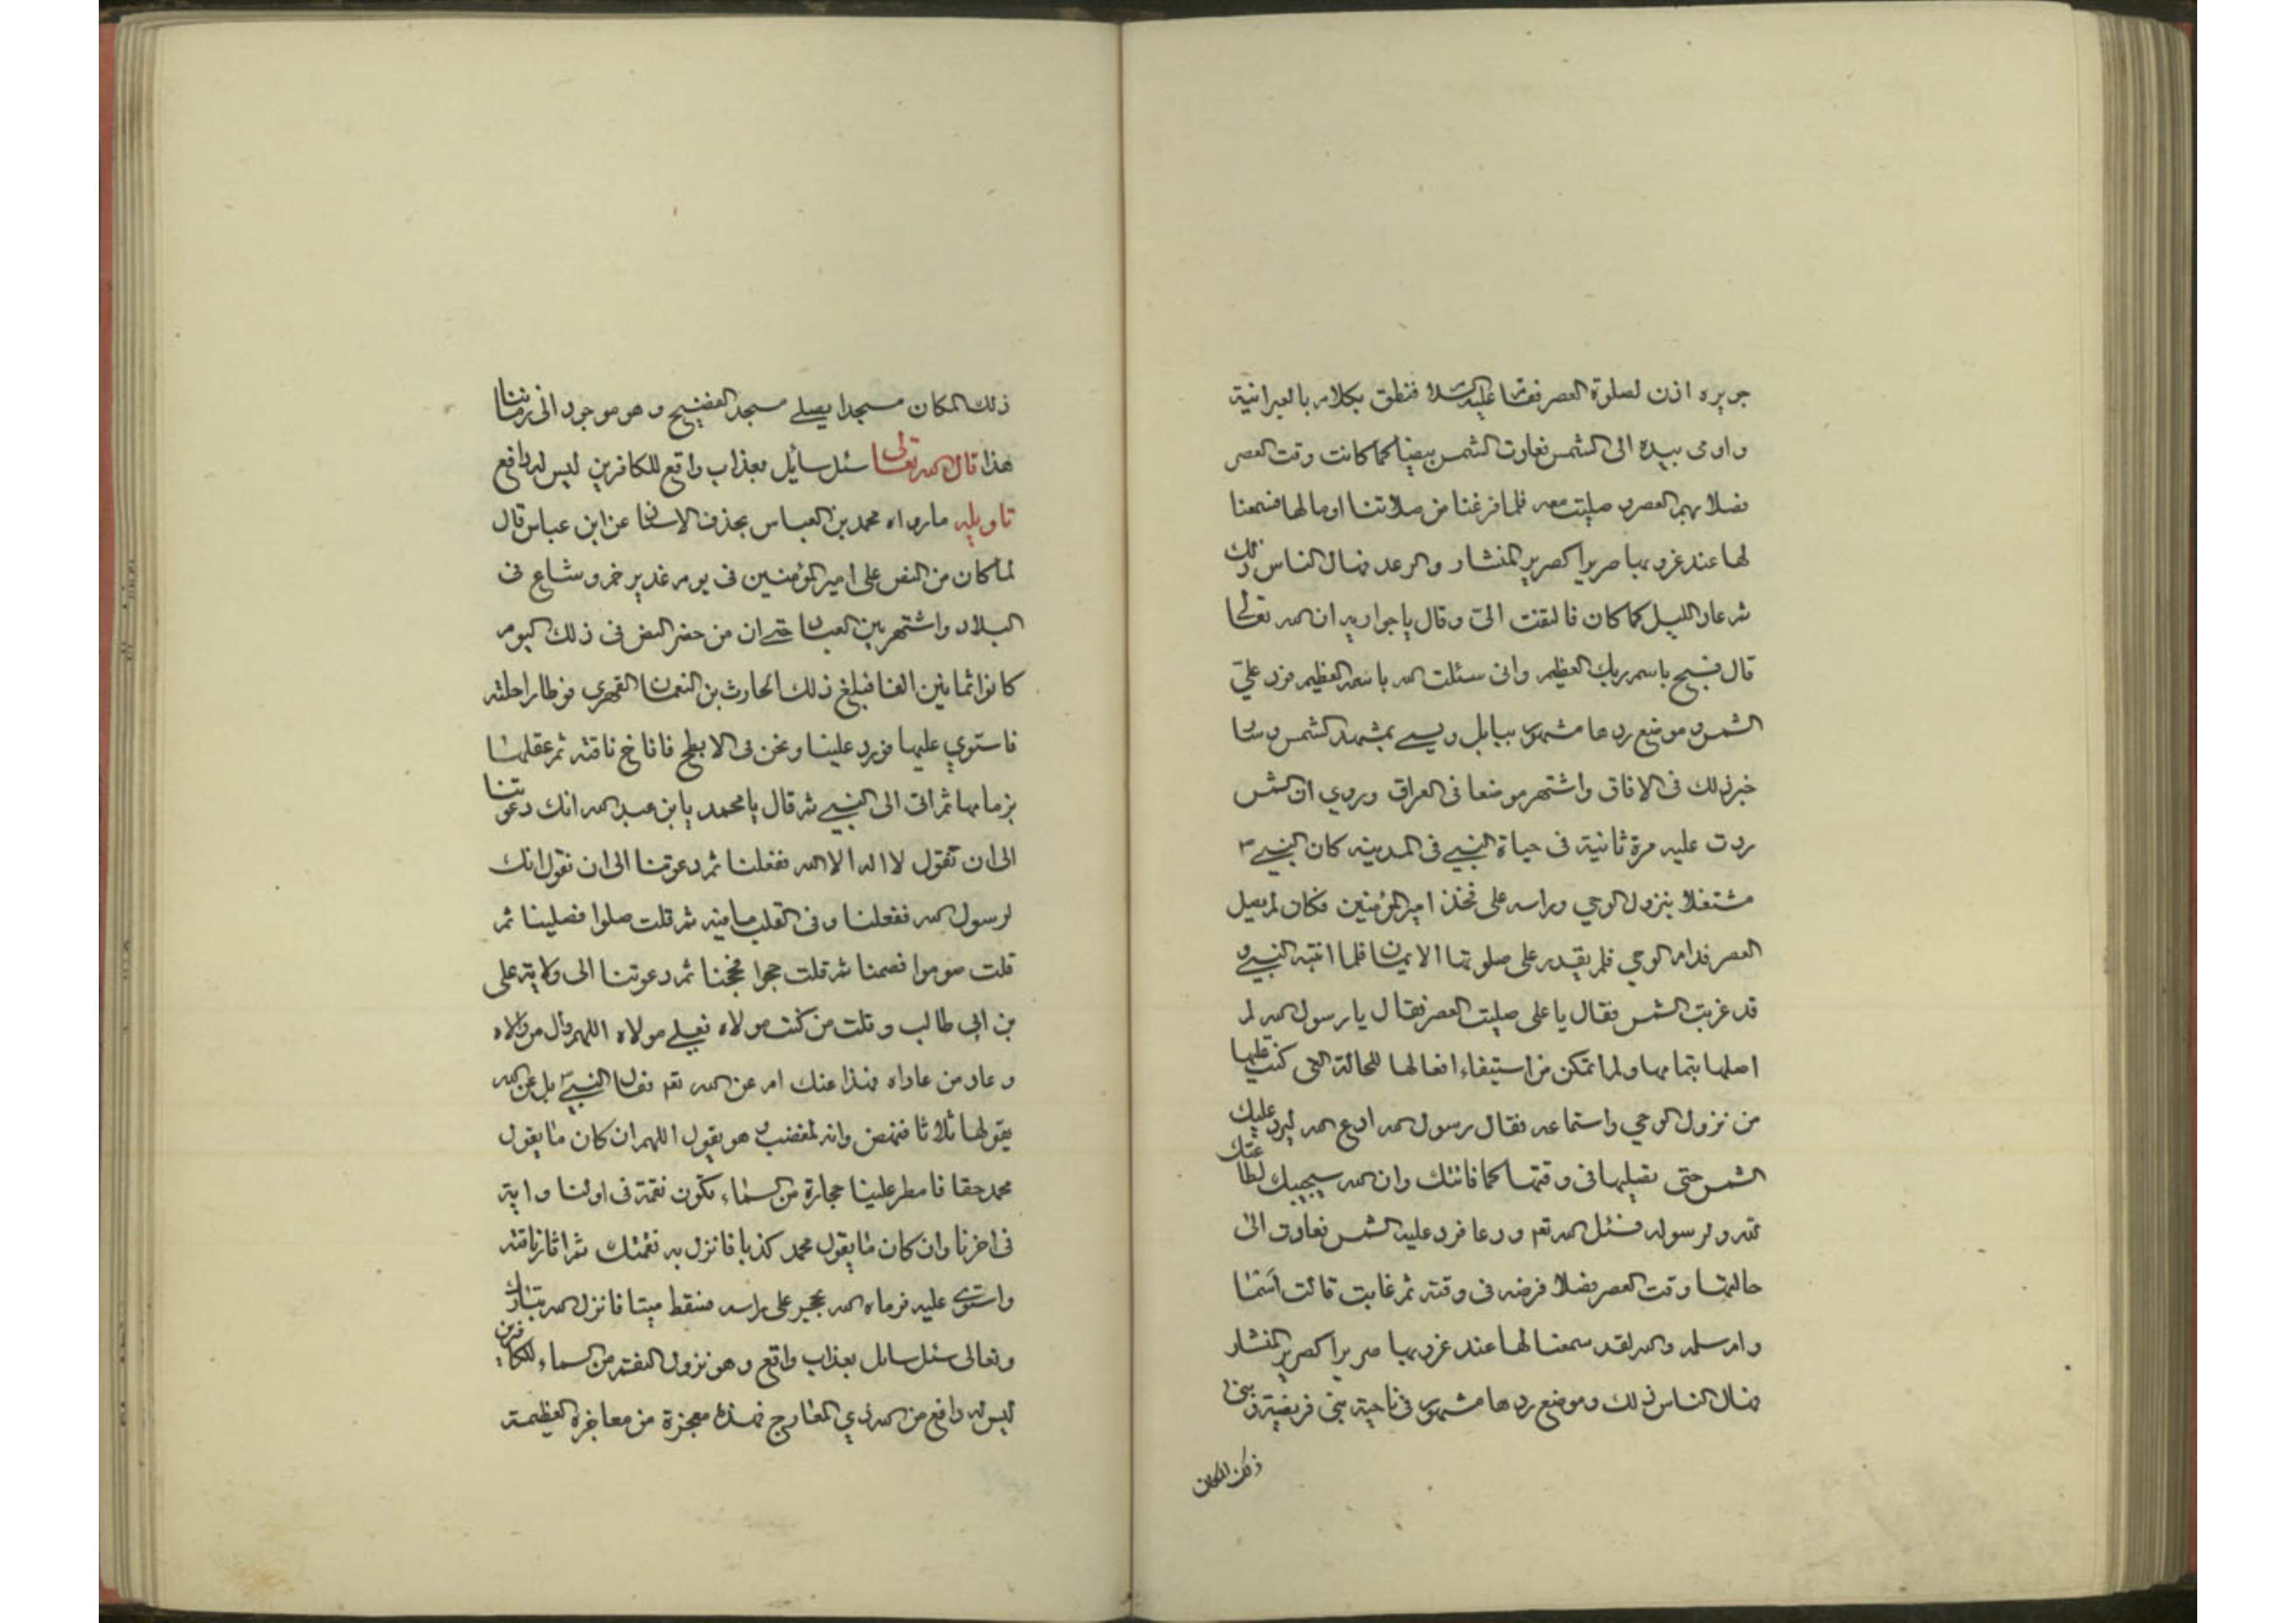 جويره اذن لصلوة العصر فقام عليه السلام فنطق بكلام بالعبرانية
واومى بيده الى الشمس فعادت الشمس بيضا كما كانت وقت العصر
فصلا بهم العصر و صليت معه فلما فرغنا من صلاتنا اوما لها فسمعنا
لها عند غروبها صريرا كصرير المنشار والرعد فسال الناس ذلك
ثم عاد الليل كما كان فالتفت الى وقال يا جواريه ان الله تعالى
قال فسبح باسم ربك العظيم وانى سئلت الله باسمه العظيم فرد على
الشمس و موضع ردها مشهور ببابل ويسمى بمشهد الشمس و شاع
خبر ذلك فى الافاق واشتهر موضعا فى العراق وروي ان الشمس
ردت عليه مرة ثانية فى حياة النبي فى المدينه كان النبي
مشتغلا بنزول الوحي وراسه على فخذ امير المؤمنين فكان لم يصل
العصر فدام الوحي فلم يقدر على صلوتها الا ايمانا فلما انتبه النبي و
قد غربت الشمس فقال يا على صليت العصر فقال يا رسول الله لم
اصلها بتمامها ولم اتمكن من استيفاء افعالها للحالة التى كنت عليها
من نزول الوحي واستماعه فقال رسول الله ادع الله ليرد عليك
الشمس حتى تصليها فى وقتها كما فاتتك وان الله سيجيبك لطاعتك
لله و لرسوله فسئل الله تعم ودعا فرد عليه الشمس فعادت الى
حالتها وقت العصر فصلا فرضه فى وقته ثم غابت قالت اسما
وام سلمه والله لقد سمعنا لها عند غروبها صريرا كصرير المنشار
فسال الناس ذلك وموضع ردها مشهور فى ناحية بنى قريضة و بنى
ذلك المكان
ذلك المكان مسجدا يصلى مسجد الفضيح وهو موجود الى زماننا
هذا قال الله تعالى سئل سائل بعذاب واقع للكافرين ليس له دافع
تاويله ما رواه محمد بن العباس بحذف الاسناد عن ابن عباس قال
لما كان من النص على امير المؤمنين فى يوم غدير خم و شاع فى
البلاد واشتهر بين العباد حتى ان من حضر النص فى ذلك اليوم
كانوا ثمانين الفا فبلغ ذلك الحارث بن النعمان الفهري فوطا راحلته
فاستوي عليها فورد علينا ونحن فى الابطح فاناخ ناقته ثم عقلها
بزمامها ثم اتى الى النبي ثم قال يا محمد يا بن عبد الله انك دعوتنا
الى ان نقول لا اله الا الله ففعلنا ثم دعوتنا الى ان نقول انك
لرسول الله ففعلنا وفى القلب ما فيه ثم قلت صلوا فصلينا ثم
قلت صوموا فصمنا ثم قلت حجوا فحججنا ثم دعوتنا الى ولاية على
بن ابى طالب وقلت من كنت مولاه فعلي مولاه اللهم وال من والاه
وعاد من عاداه فهذا عنك ام عن الله تعم فقال النبي بل عن الله
يقولها ثلاثا فنهض وانه لمغضب و هو يقول اللهم ان كان ما يقول
محمد حقا فامطر علينا حجارة من السماء تكون نقمة فى اولنا و اية
فى اخرنا وان كان ما يقول محمد كذبا فانزل به نقمتك ثم اثار ناقته
واستوى عليه فرماه الله بحجر على راسه فسقط ميتا فانزل الله تبارك
وتعالى سئل سايل بعذاب واقع وهو نزول النقمة من السماء للكافرين
ليس له دافع من الله ذي المعارج فهذه معجزة من معاجزه العظيمة